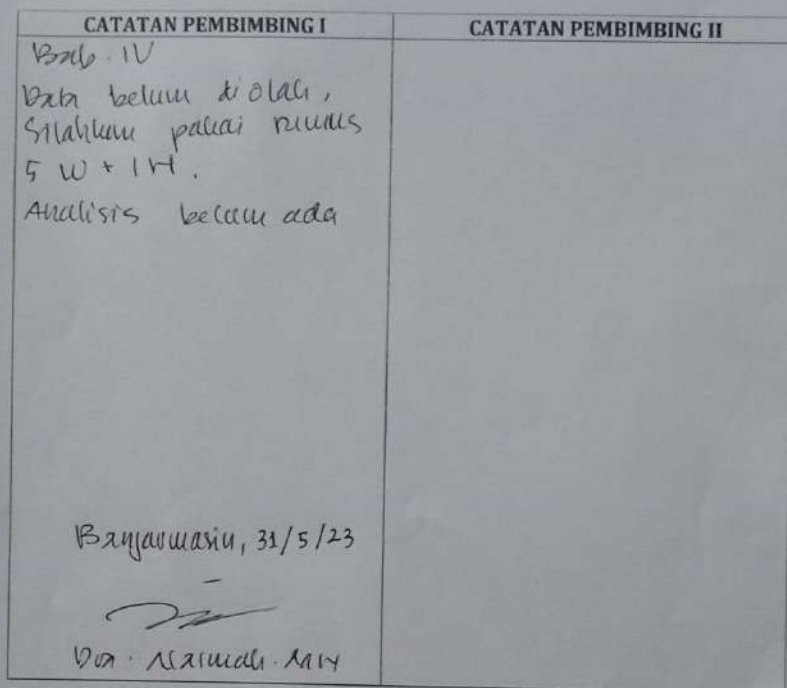 CATATAN PEMBIMBING I
CATATAN PEMBIMBING II
Bab. IV
Data belum diolah,
Silahkan pakai rumus
5 W + 1 H.
Analisis belum ada
Banjarmasin, 31/5/23